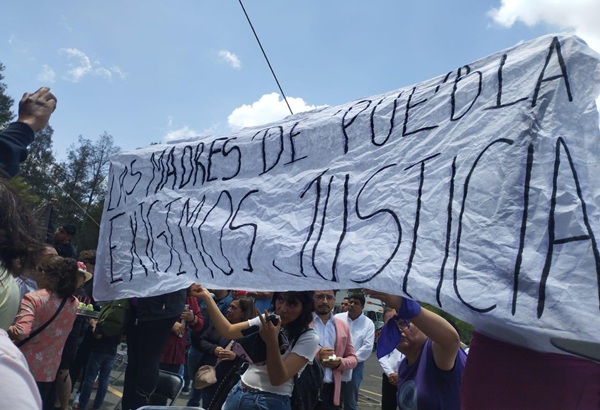 LAS MADRES DE PUEBLA
EXIGIMOS JUSTICIA